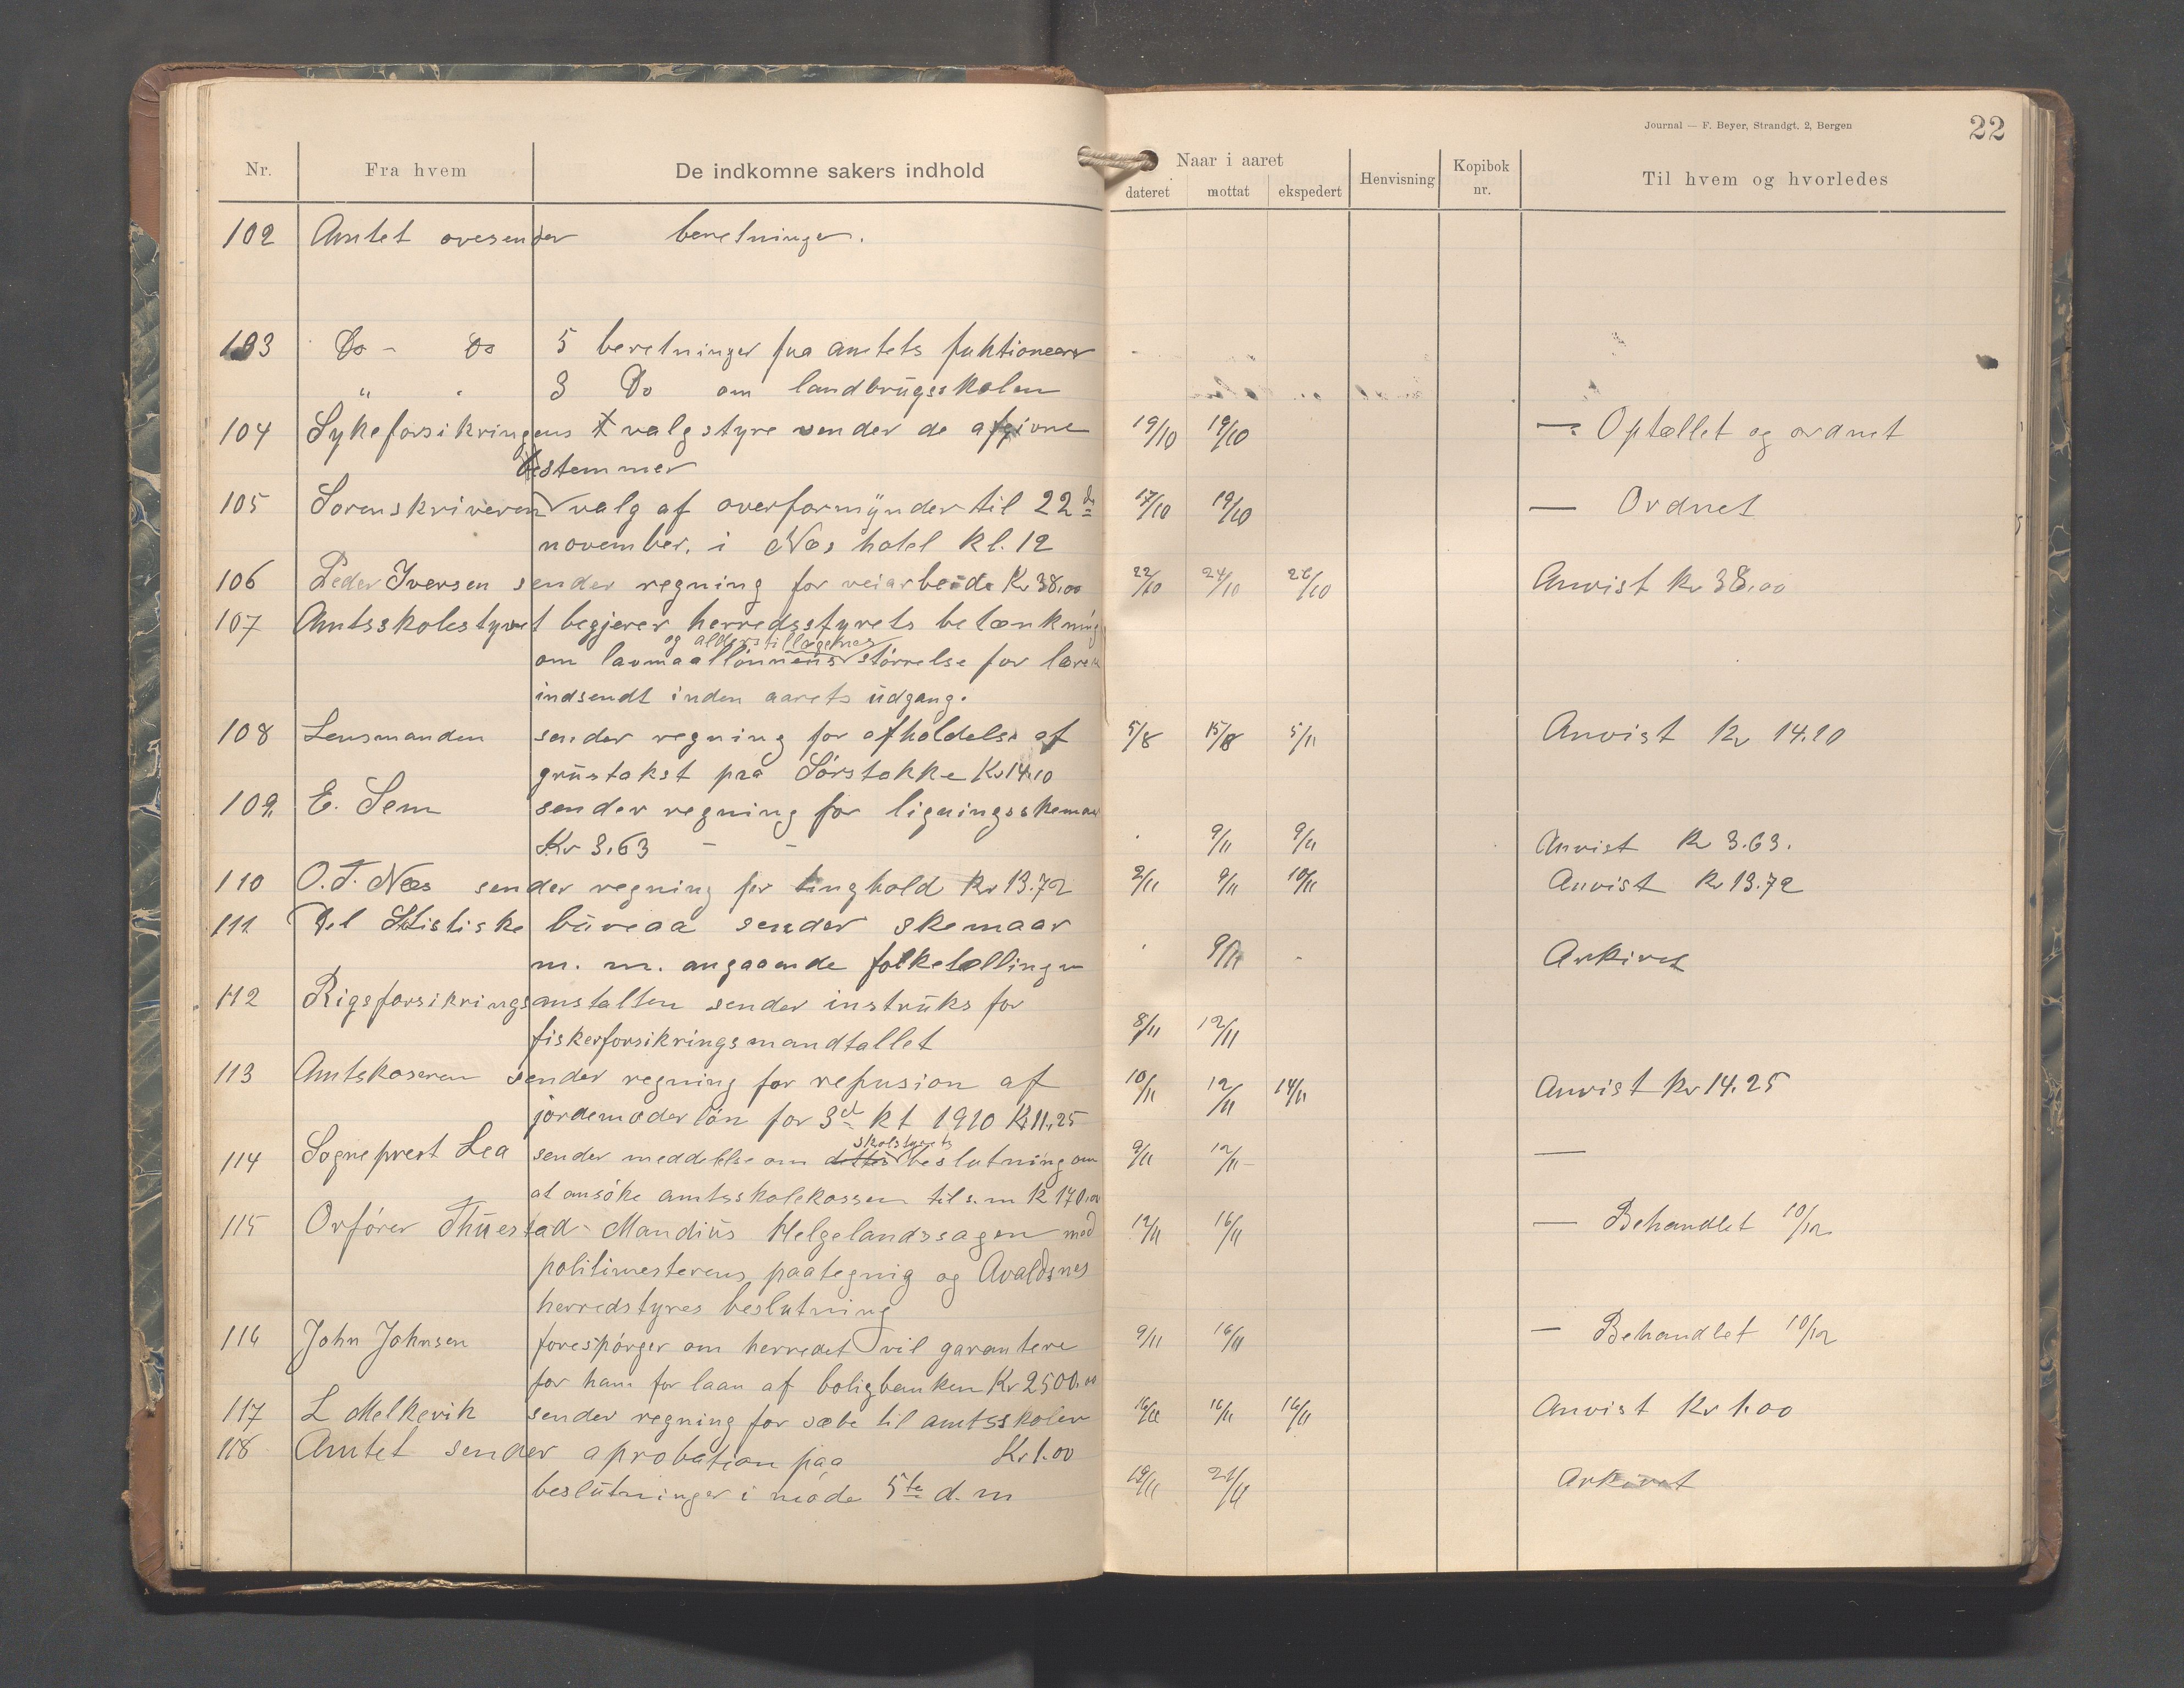 Journal — F. Beyer, Strandgt. 2, Bergen
22
Nr. Fra hvem De indkomne sakers indhold Naar i aaret dateret mottat ekspedert Henvisning Kopibok nr. Til hvem og hvorledes
102 Amtet oversender beretninger.
103 Do - Do 5 beretninger fra amtets funktioneærer
" " 3 Do om landbrugsskolen
104 Sykeforsikringens valgstyre sender de afgivne 19/10 19/10 — Optællet og ordnet
stemmer
105 Sorenskriveren valg af overformynder til 22de 17/10 19/10 — Ordnet
november. i Næs hotel kl. 12
106 Peder Iversen sender regning for veiarbeide Kr 38,00 22/10 24/10 26/10 Anvist Kr 38,00
107 Amtsskolestyret begjærer herredsstyrets betænkning
og alderstillægenes
om lavmaallønnens størrelse for lærere
indsendt inden aarets udgang.
108 Lensmanden sender regning for afholdelse af 5/8 15/8 5/11 Anvist Kr 14.10
grustakst paa Sørstokke Kr 14.10
109 E. Sem sender regning for ligningsskemaer
Kr 3.63 - - 9/11 9/11 Anvist Kr 3.63.
110 O.T. Næs sender regning for tinghold Kr 13.72 2/11 9/11 10/11 Anvist Kr 13.72
111 Det Statistiske büreaa sender skemaar
m. m. angaaende folketellingen 9/11 - Arkivet
112 Rigsforsikringsanstalten sender instruks for
fiskerforsikringsmandtallet 8/11 12/11
113 Amtskaseren sender regning for refusion af 10/11 12/11 14/11 Anvist Kr 14.25
jordemoderløn for 3d kt 1910 Kr 11,25
114 Sogneprest Lea sender meddelelse om skolstyrets beslutning om 9/11 12/11 —
at ansøke amtsskolekassen til s. m K 170.00
115 Orfører Thuestad - Mandius Helgelandssagen med 12/11 16/11 — Behandlet 10/12
politimesterens paategnig og Avaldsnes
herredstyres beslutning
116 John Johnsen forespørger om herredet vil garantere 9/11 16/11 — Behandlet 10/12
for ham for laan af boligbanken Kr 2500.00
117 L Melkevik sender regning for sæbe til amtsskolen 16/11 16/11 16/11 Anvist Kr 1.00
118 Amtet sender aprobation paa Kr 1.00
beslutninger i møde 5te d. m 19/11 21/11 Arkivet